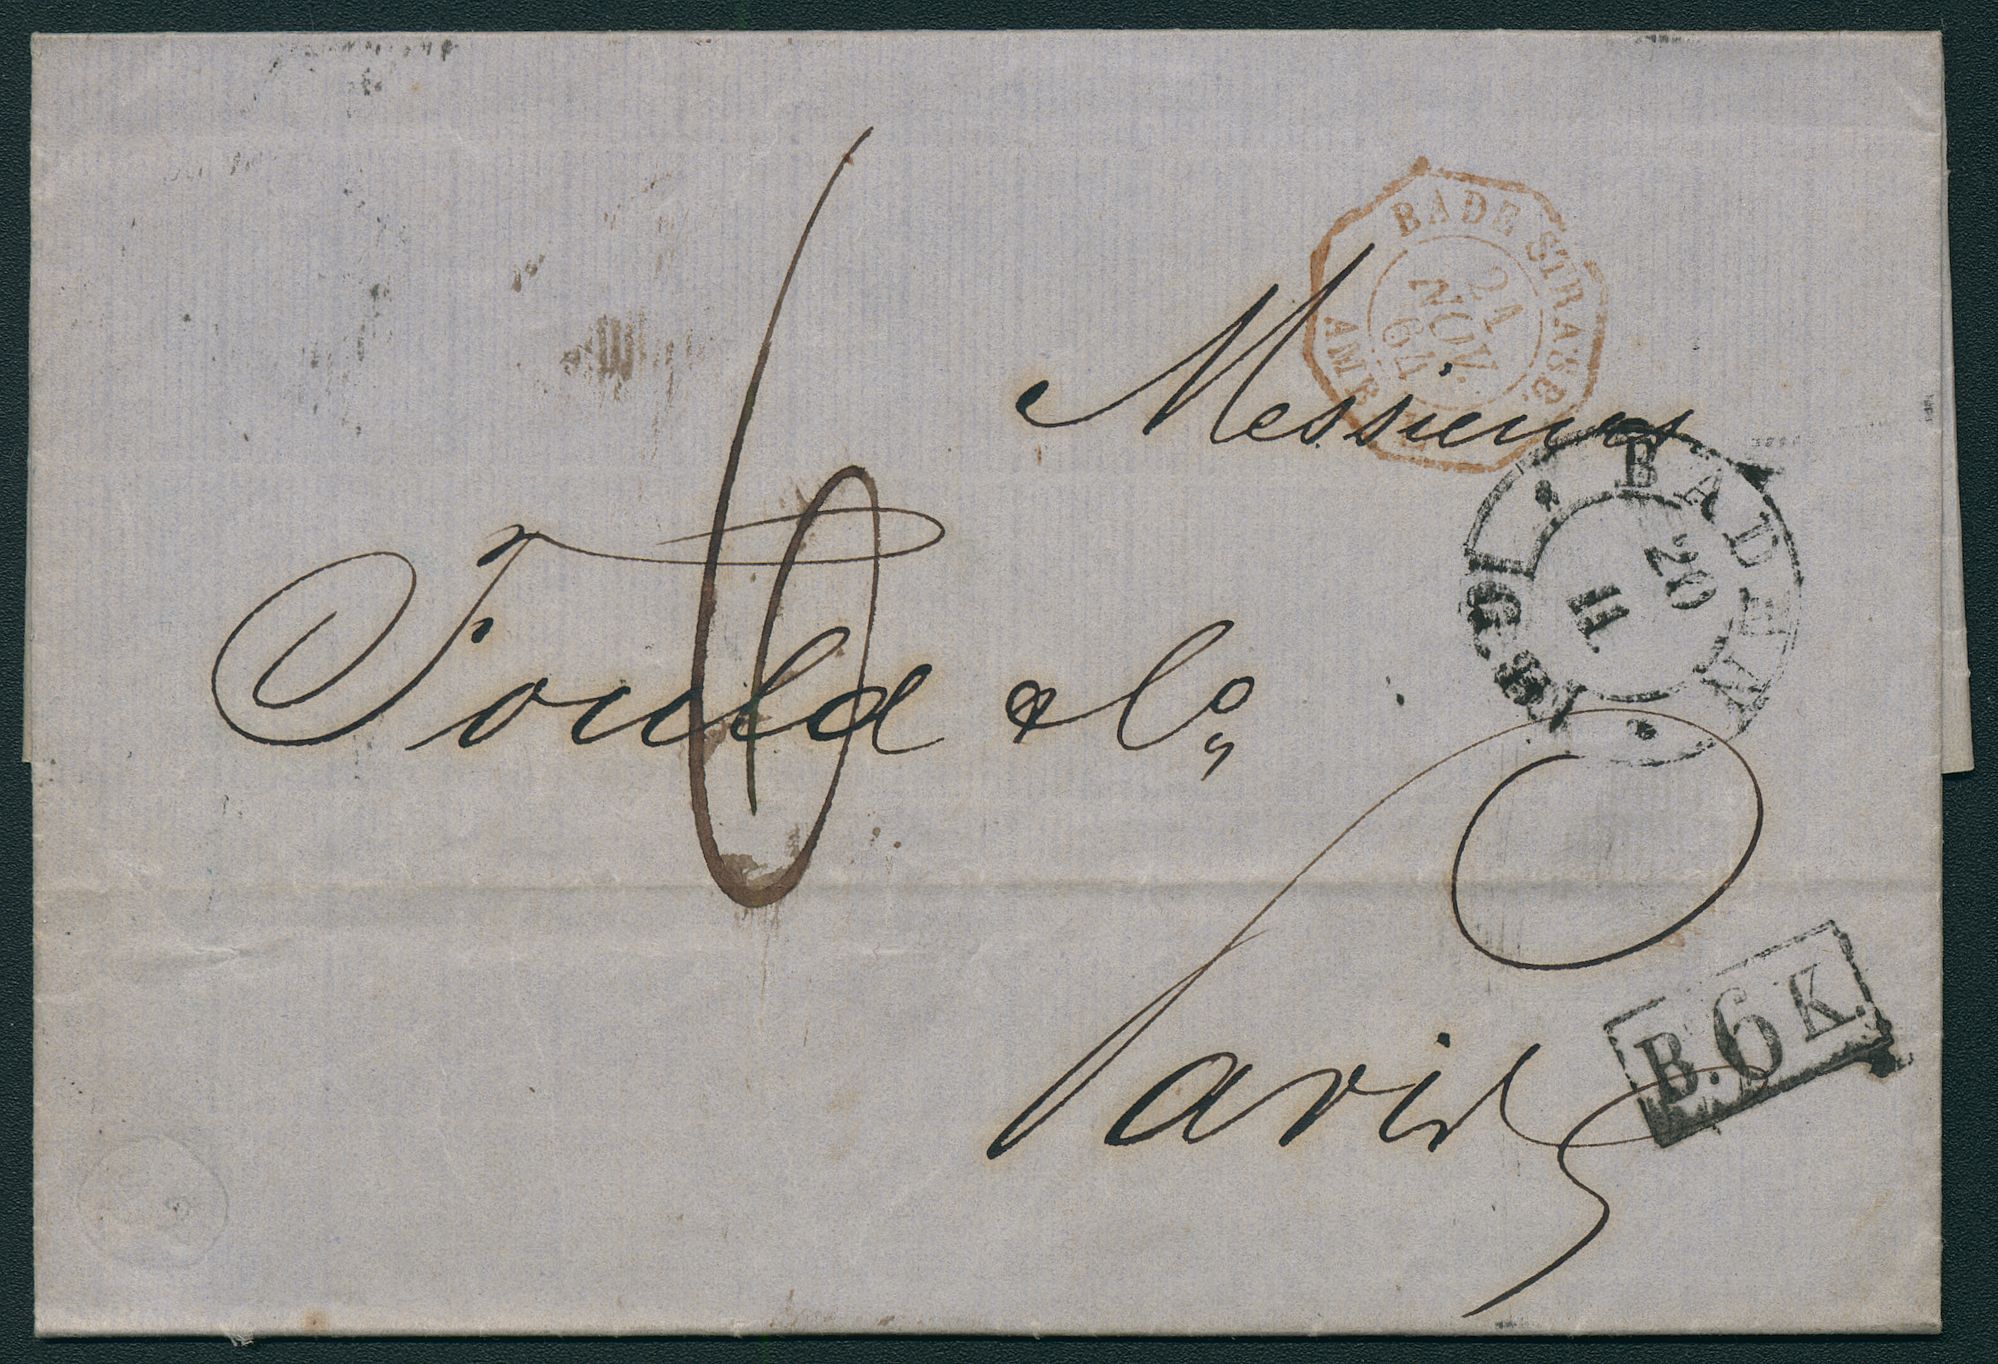 BADE STRASB.
AMB.
21
NOV.
64
Messieurs
BADEN
20
11
6
Fould & Co,
Paris
B. 6 K.